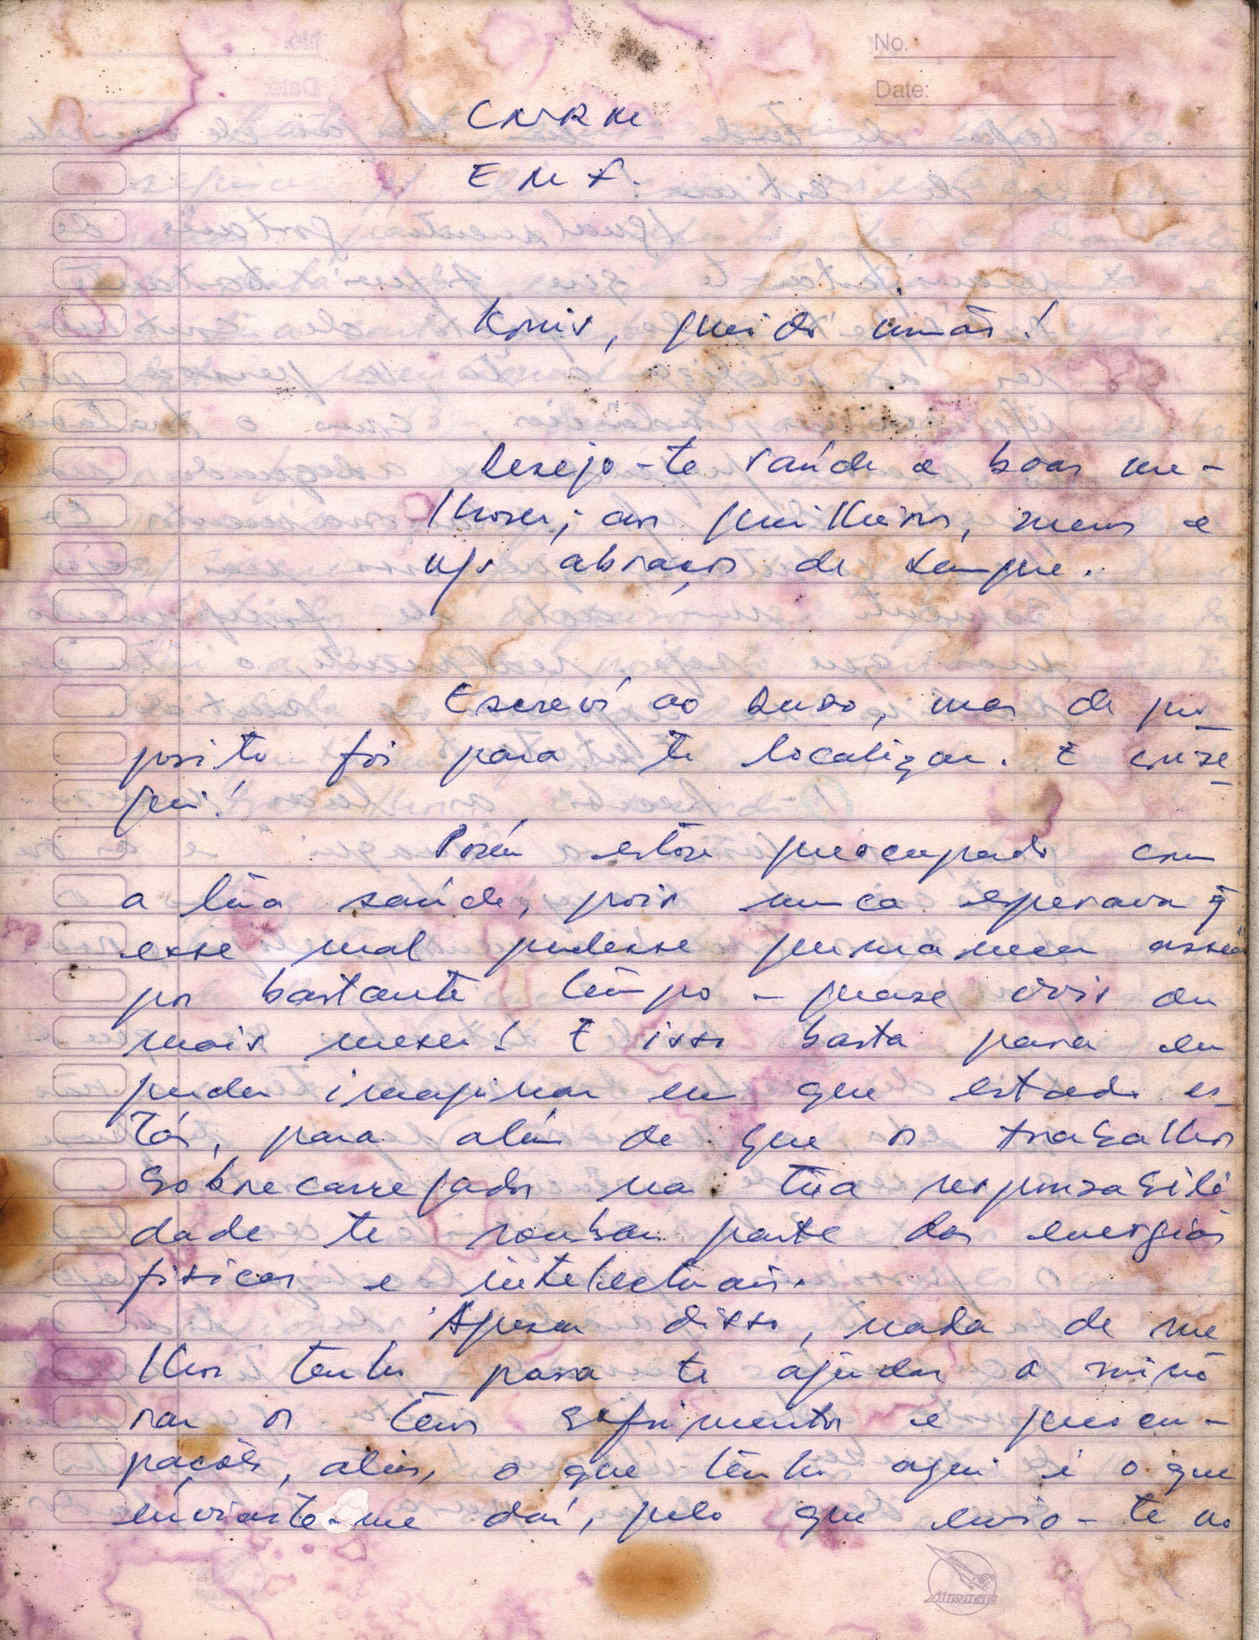 No.
Date:
CNRM
EMF.
Konis, querido irmão!
Desejo-te saúde e boas me-
lhoras; aos pequenos, meus e
n/s abraços de sempre.
Escreví ao Russo, mas de pro
posito foi para te localizar. E conse
gui!
Porém estou preocupado com
a túa saúde, pois nunca esperava q
esse mal pudesse permanecer assim
por bastante tempo - quase dois ou
mais meses! E isso basta para eu
puder imaginar em que estado es-
tás, para além de que os trabalhos
sobrecarregados na túa responsabili
dade te roubam parte das energias
físicas e intelectuais.
Apesar disso, nada de me
lhor tenho para te ajudar a mino
rar os teus sofrimentos e preocu-
pações, aliás, o que tenho aqui é o que
enviaste-me daí, pelo que envio-te ao